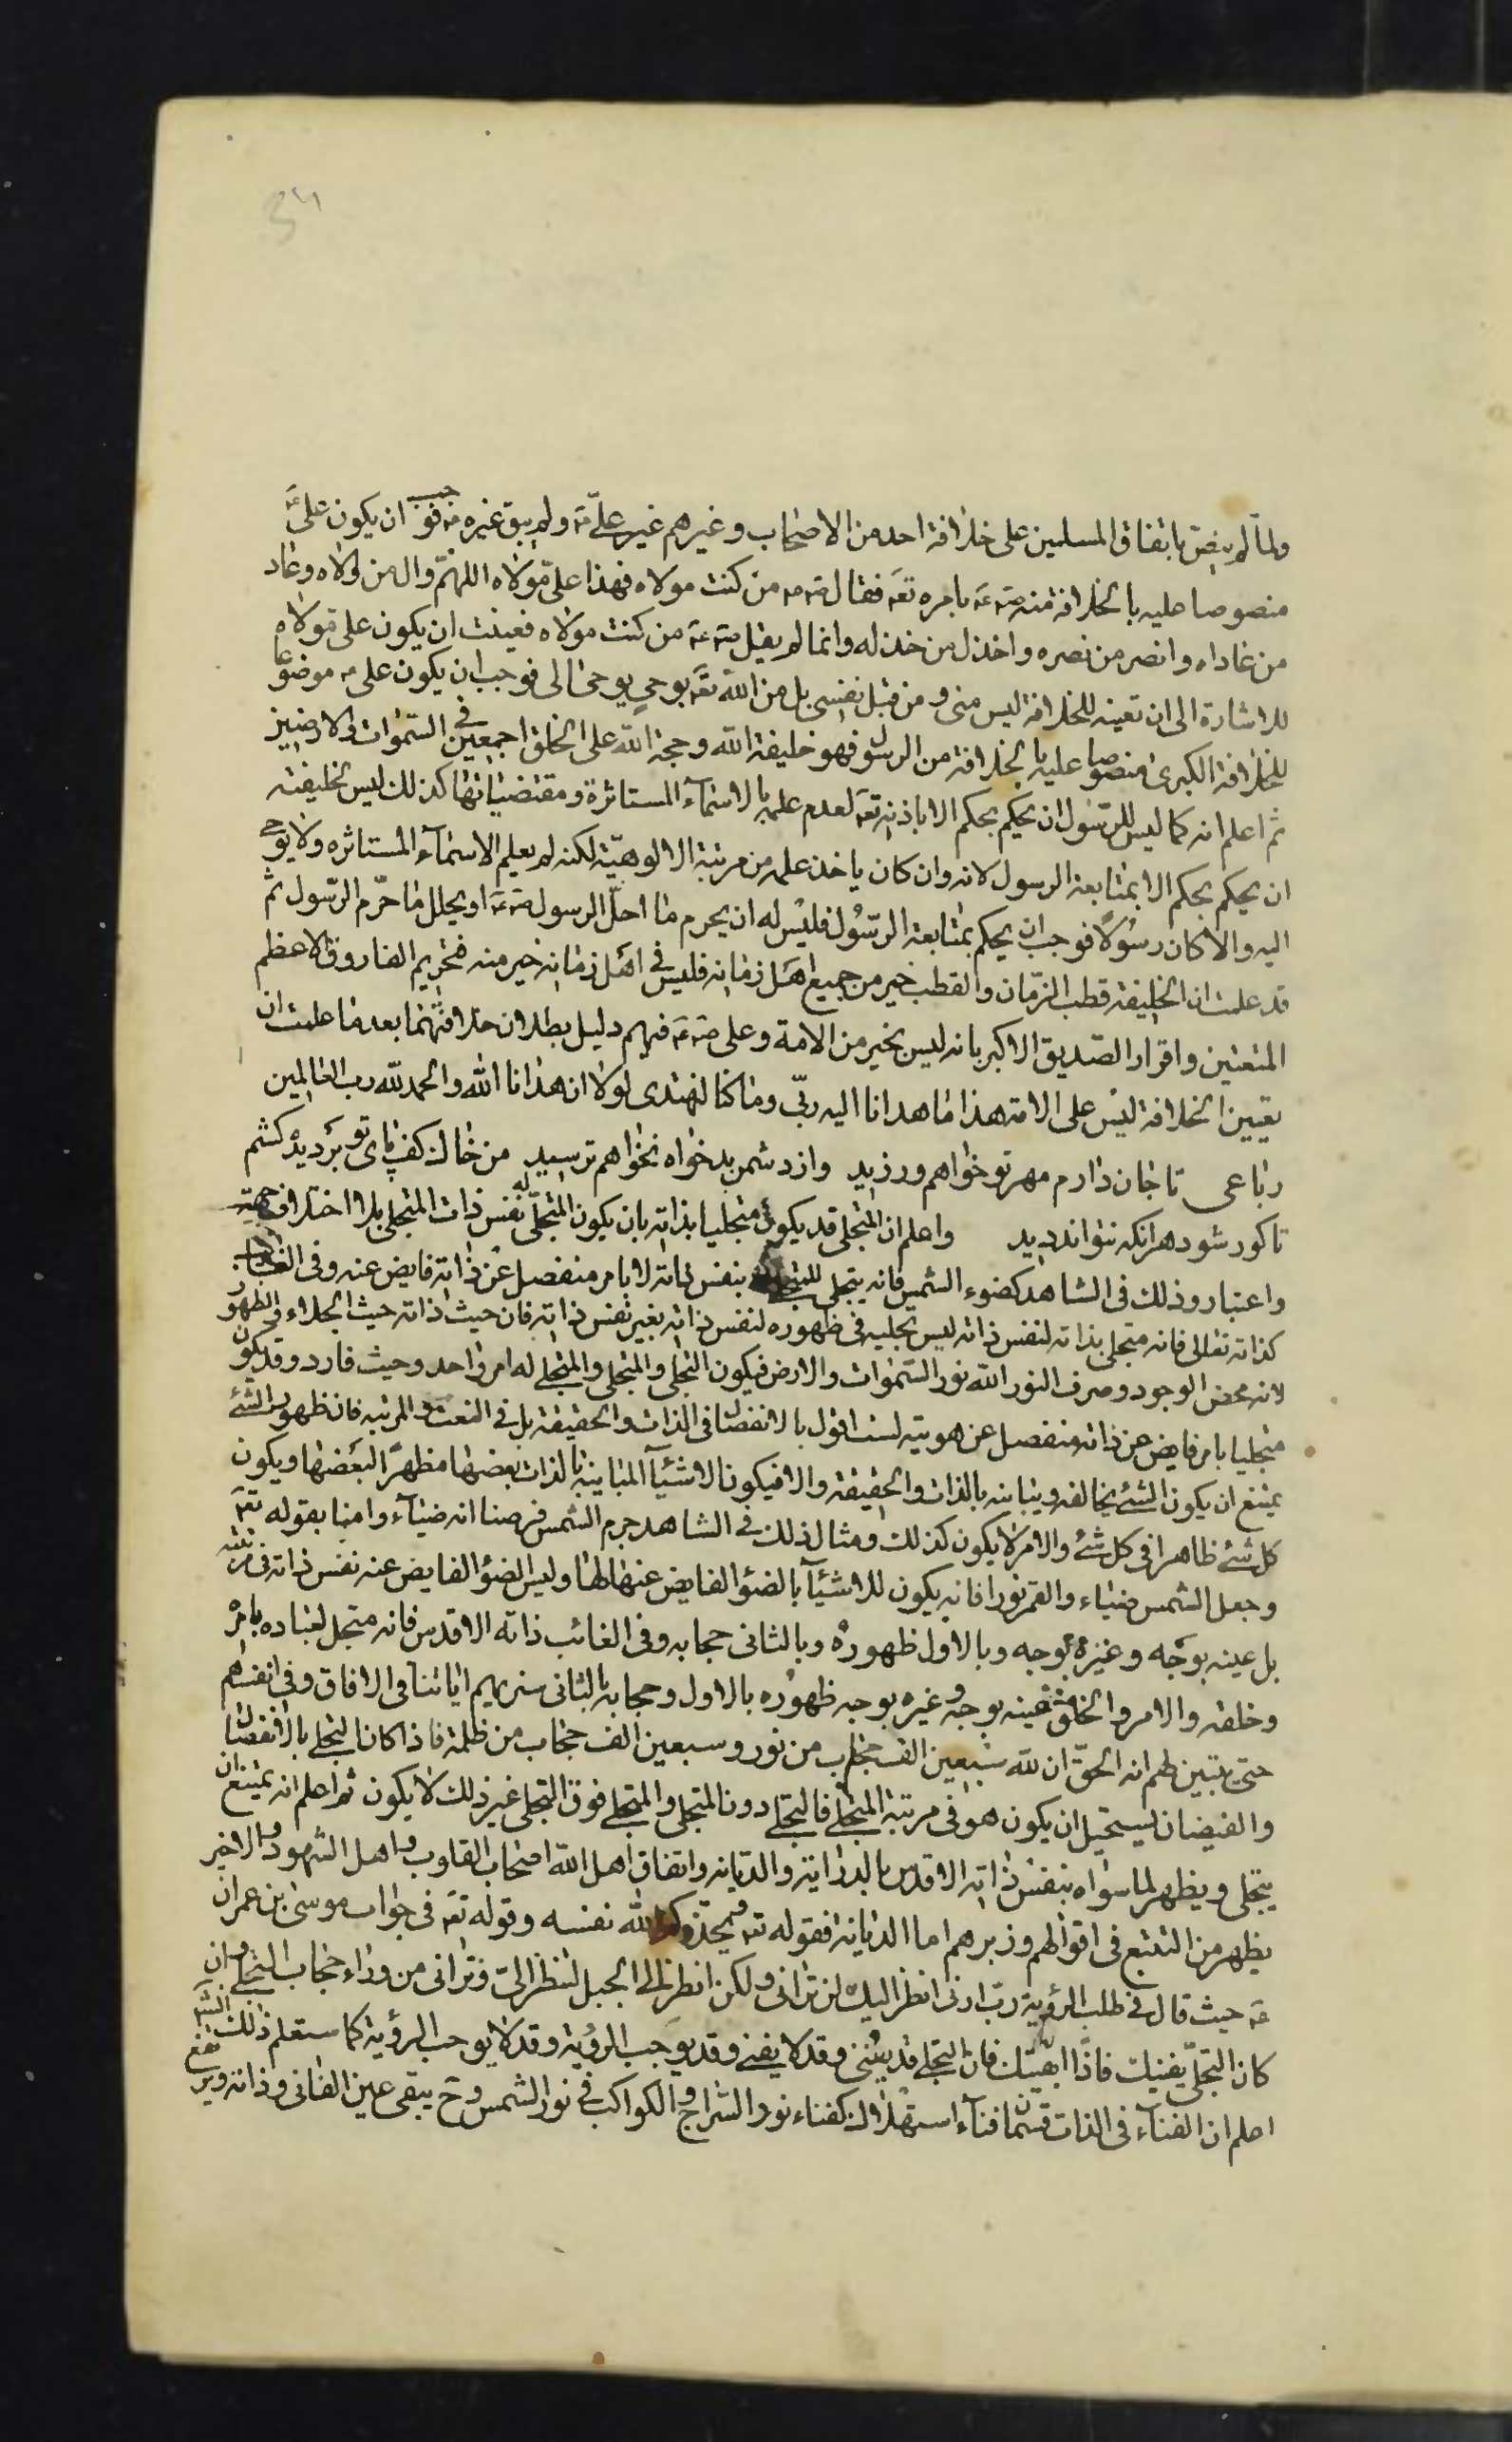 34
ولما لم ينص باتفاق المسلمين على خلافة احد من الاصحاب وغيرهم غير علىّ ع ولم يبق غيره ع فوجب ان يكون علىّ ع
منصوصا عليه بالخلافة منه ص ع بامره تعه فقال ص ع من كنت مولاه فهذا علىّ مولاه اللهمّ وال من والاه وعاد
من عاداه وانصر من نصره واخذل من خذله وانما لم يقل ص ع من كنت مولاه فعينت ان يكون على مولاه
للاشارة الى ان تعينه للخلافة ليس منى ومن قبل نفسى بل من الله تعه بوحى يوحى الى فوجب ان يكون على ع موضوعا
للخلافة الكبرى منصوصا عليه بالخلافة من الرسول فهو خليفة الله وحجة الله على الخلق اجمعين فى السموات والارضين
ثم اعلم انه كما ليس للرّسول ان يحكم بحكم الا باذنه تعه لعدم علمه بالاسمآء المستاثرة ومقتضياتها كذلك ليس لخليفته
ان يحكم بحكم الا بمتابعة الرسول لانه وان كان ياخذ علمه من مرتبة الالوهيّة لكنه لم يعلم الاسمآء المستاثره ولا يوحى
اليه والا كان رسولاً فوجب ان يحكم بمتابعة الرّسول فليس له ان يحرم ما احلّ الرسول ص ع او يحلل ما حرّم الرّسول ثم
قد علمت ان الخليفة قطب الزّمان والقطب خير من جميع اهل زمانه فليس فى اهل زمانه خير منه فتحريم الفاروق الاعظم
المتعتين واقرار الصّديق الاكبر بانه ليس بخير من الامة وعلى ص ع فيهم دليل بطلان خلافتهما بعد ما علمت ان
تعيين الخلافة ليس على الامة هذا ما هدانا اليه ربّى وما كنا لنهتدى لولا ان هدانا الله والحمد لله رب العالمين
رباعى تا جان دارم مهر تو خواهم ورزيد وازدشمن بدخواه نخواهم ترسيد من خاك كف پاى تو بر ديده كشم
تا كور شود هر انكه نتواند ديد واعلم ان المتجلى قد يكون متجليا بذاته بان يكون المتجلّى له نفس ذات المتجلى بلا اختلاف جهة
واعتبار وذلك فى الشاهد كضوء الشمس فانه يتجلى بنفس ذاته لا بامر منفصل عن ذاته فايض عنه وفى الغايب
كذاته تعالى فانه متجلى بذاته لنفس ذاته ليس تجليه فى ظهوره لنفس ذاته بغير نفس ذاته فان حيث ذاته حيث الجلاء فى الظهور
لانه محض الوجود وصرف النور الله نور السّموات والارض فيكون التجلى والمتجلى والمتجلى له امر واحد وحيث فارد وقد يكون
متجليا بامر فايض عن ذاته منفصل عن هويته لست اقول بالانفصال فى الذات والحقيقة بل فى النعت والمرتبه فان ظهور الشئ
يمتنع ان يكون الشئ يخالفه ويباينه بالذات والحقيقة والا فيكون الاشيآء المتباينة بالذات بعضها مظهرًا لبعضها ويكون
كل شئ ظاهرا فى كل شئ والامر لا يكون كذلك ومثال ذلك فى الشاهد جرم الشمس فرضنا انه ضيآء وامنا بقوله تعه
وجعل الشمس ضياء والقمر نورا فانه يكون للاشيآء بالضئو الفايض عنها لها وليس الضئو الفايض عنه نفس ذاته فى مرتبته
بل عينه بوجه وغيره بوجه وبالاول ظهوره وبالثانى حجابه وفى الغائب ذاته الاقدس فانه متجل لعباده بامره
وخلقه والامر والخلق عينه بوجه وغيره بوجه ظهوره بالاول وحجابه بالثانى سنريهم اياتنا فى الافاق وفى انفسهم
حتى يتبين لهم انه الحقّ ان لله سبعين الف حجاب من نور وسبعين الف حجاب من ظلمة فاذا كان التجلى بالانفصال
والفيضان ليستحيل ان يكون هو فى مرتبة المتجلى فالتجلى دون المتجلى والمتجلى فوق التجلى غير ذلك لا يكون ثم اعلم انه يمتنع ان
يتجلى ويظهر لما سواه بنفس ذاته الاقدس بالدراية والديانه واتفاق اهل الله اصحاب القلوب واهل الشهود والاخير
يظهر من التتبع فى اقوالهم وزبرهم اما الديانة فقوله تعه ويحذركم الله نفسه وقوله تعه فى جواب موسى بن عمران
ع حيث قال فى طلب الرؤية رب ارنى انظر اليك لن ترانى ولكن انظر الى الجبل لتنظر الىّ وترانى من وراء حجاب التجلى وان
كان التجلّى يفنيك فاذا ابقيتك فان التجلى قد يفنى وقد لا يفنى وقد يوجب الرؤية وقد لا يوجب الرؤية كما ستعلم ذلك انشآ
اعلم ان الفنآء فى الذات قسمان فنآء استهلاك كفناء نور السّراج والكواكب فى نور الشمس وح يبقى عين الفانى وذاته ويرتفع